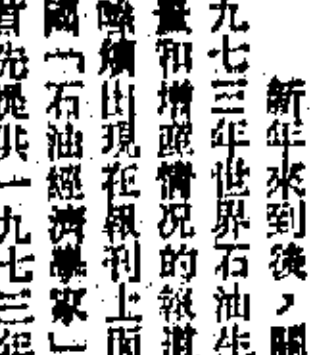 新年來到後，關
九七三年世界石油生
量和增産情況的報道
陸續出現在報刊上面
國「石油經濟學家」
首先提供一九七三年